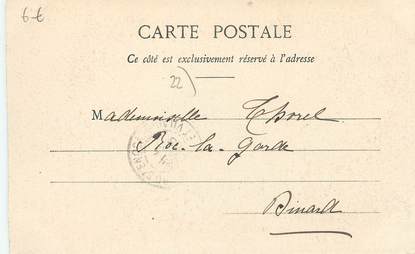 6 €
CARTE POSTALE
Ce côté est exclusivement réservé à l'adresse
22)
Mademoiselle Thorel
Roc-la-Garde
Dinard